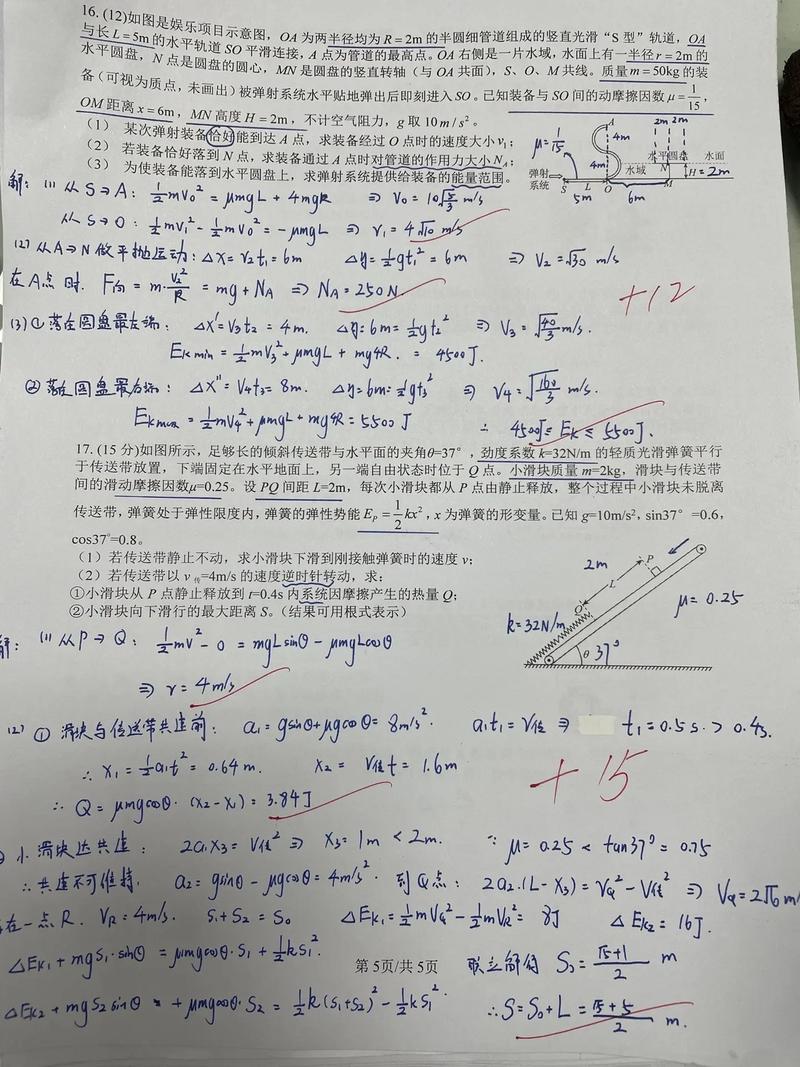 16. (12)如图是娱乐项目示意图，OA 为两半径均为 R = 2m 的半圆细管道组成的竖直光滑“S 型”轨道，OA
与长 L = 5m 的水平轨道 SO 平滑连接，A 点为管道的最高点。OA 右侧是一片水域，水面上有一半径 r = 2m 的
水平圆盘，N 点是圆盘的圆心，MN 是圆盘的竖直转轴（与 OA 共面），S、O、M 共线。质量 m = 50kg 的装
备（可视为质点，未画出）被弹射系统水平贴地弹出后即刻进入 SO。已知装备与 SO 间的动摩擦因数 μ = 1/15，
OM 距离 x = 6m，MN 高度 H = 2m，不计空气阻力，g 取 10 m / s²。
（1） 某次弹射装备恰好能到达 A 点，求装备经过 O 点时的速度大小 v₁；
（2） 若装备恰好落到 N 点，求装备通过 A 点时对管道的作用力大小 N_A；
（3） 为使装备能落到水平圆盘上，求弹射系统提供给装备的能量范围。
μ = 1/15
A
4m
4m
2m 2m
水平圆盘
水面
弹射
系统
水域
N
H = 2m
S
L
O
M
5m
6m
解: (1) 从 S→A: ½mV₀² = μmgL + 4mgR ⇒ V₀ = 10√(5/3) m/s
从 S→O: ½mV₁² - ½mV₀² = -μmgL ⇒ v₁ = 4√10 m/s
(2) 从A→N做平抛运动: Δx = v₂t₁ = 6m Δy = ½gt₁² = 6m ⇒ V₂ = √30 m/s
在A点时. F向 = m·V₂²/R = mg + N_A ⇒ N_A = 250N.
+12
(3) ① 落在圆盘最左端: Δx' = V₃t₂ = 4m. Δy = 6m = ½gt₂² ⇒ V₃ = √(40/3) m/s.
Ek min = ½mV₃² + μmgL + mg4R. = 4500J.
② 落在圆盘最右端: Δx'' = V₄t₃ = 8m. Δy = 6m = ½gt₃² ⇒ V₄ = √(160/3) m/s.
Ek max = ½mV₄² + μmgL + mg4R = 5500J ∴ 4500J ≤ Ek ≤ 5500J.
17. (15 分)如图所示，足够长的倾斜传送带与水平面的夹角θ=37°，劲度系数 k=32N/m 的轻质光滑弹簧平行
于传送带放置，下端固定在水平地面上，另一端自由状态时位于 Q 点。小滑块质量 m=2kg，滑块与传送带
间的滑动摩擦因数μ=0.25。设 PQ 间距 L=2m，每次小滑块都从 P 点由静止释放，整个过程中小滑块未脱离
传送带，弹簧处于弹性限度内，弹簧的弹性势能 E_P = ½kx²，x 为弹簧的形变量。已知 g=10m/s²，sin37°=0.6，
cos37°=0.8。
（1）若传送带静止不动，求小滑块下滑到刚接触弹簧时的速度 v；
（2）若传送带以 v传=4m/s 的速度逆时针转动，求：
①小滑块从 P 点静止释放到 t=0.4s 内系统因摩擦产生的热量 Q；
②小滑块向下滑行的最大距离 S。（结果可用根式表示）
2m
P
L
Q
k = 32N/m
μ = 0.25
θ 37°
解: (1) 从 P→Q: ½mV² - 0 = mgLsinθ - μmgLcosθ
⇒ v = 4m/s
(2) ① 滑块与传送带共速前: a₁ = gsinθ + μgcosθ = 8m/s². a₁t₁ = V传 ⇒ t₁ = 0.5s. > 0.4s.
∴ x₁ = ½a₁t² = 0.64m. x₂ = V传t = 1.6m
+15
∴ Q = μmgcosθ·(x₂ - x₁) = 3.84J
小滑块达共速: 2a₁x₃ = V传² ⇒ x₃ = 1m < 2m. ∵ μ = 0.25 < tan37° = 0.75
∴ 共速不可维持. a₂ = gsinθ - μgcosθ = 4m/s². 到Q点: 2a₂·(L - x₃) = V_Q² - V传² ⇒ V_Q = 2√6 m/s
在一点R. V_R = 4m/s. S₁ + S₂ = S₀ ΔEk₁ = ½mV_Q² - ½mV_R² = 8J ΔEk₂ = 16J.
ΔEk₁ + mgS₁·sinθ = μmgcosθ·S₁ + ½kS₁². 第 5页/共 5页 联立解得 S₀ = (√5+1)/2 m
ΔEk₂ + mgS₂sinθ = + μmgcosθ·S₂ = ½k(S₁+S₂)² - ½kS₁². ∴ S = S₀ + L = (√5+5)/2 m.